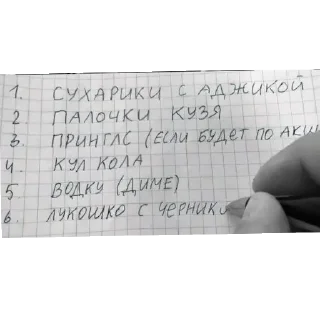 1. СУХАРИКИ С АДЖИКОЙ
2 ПАЛОЧКИ КУЗЯ
3. ПРИНГЛС (ЕСЛИ БУДЕТ ПО АКЦ
4. КУЛ КОЛА
5 ВОДКУ (ДИМЕ)
6. ЛУКОШКО С ЧЕРНИК